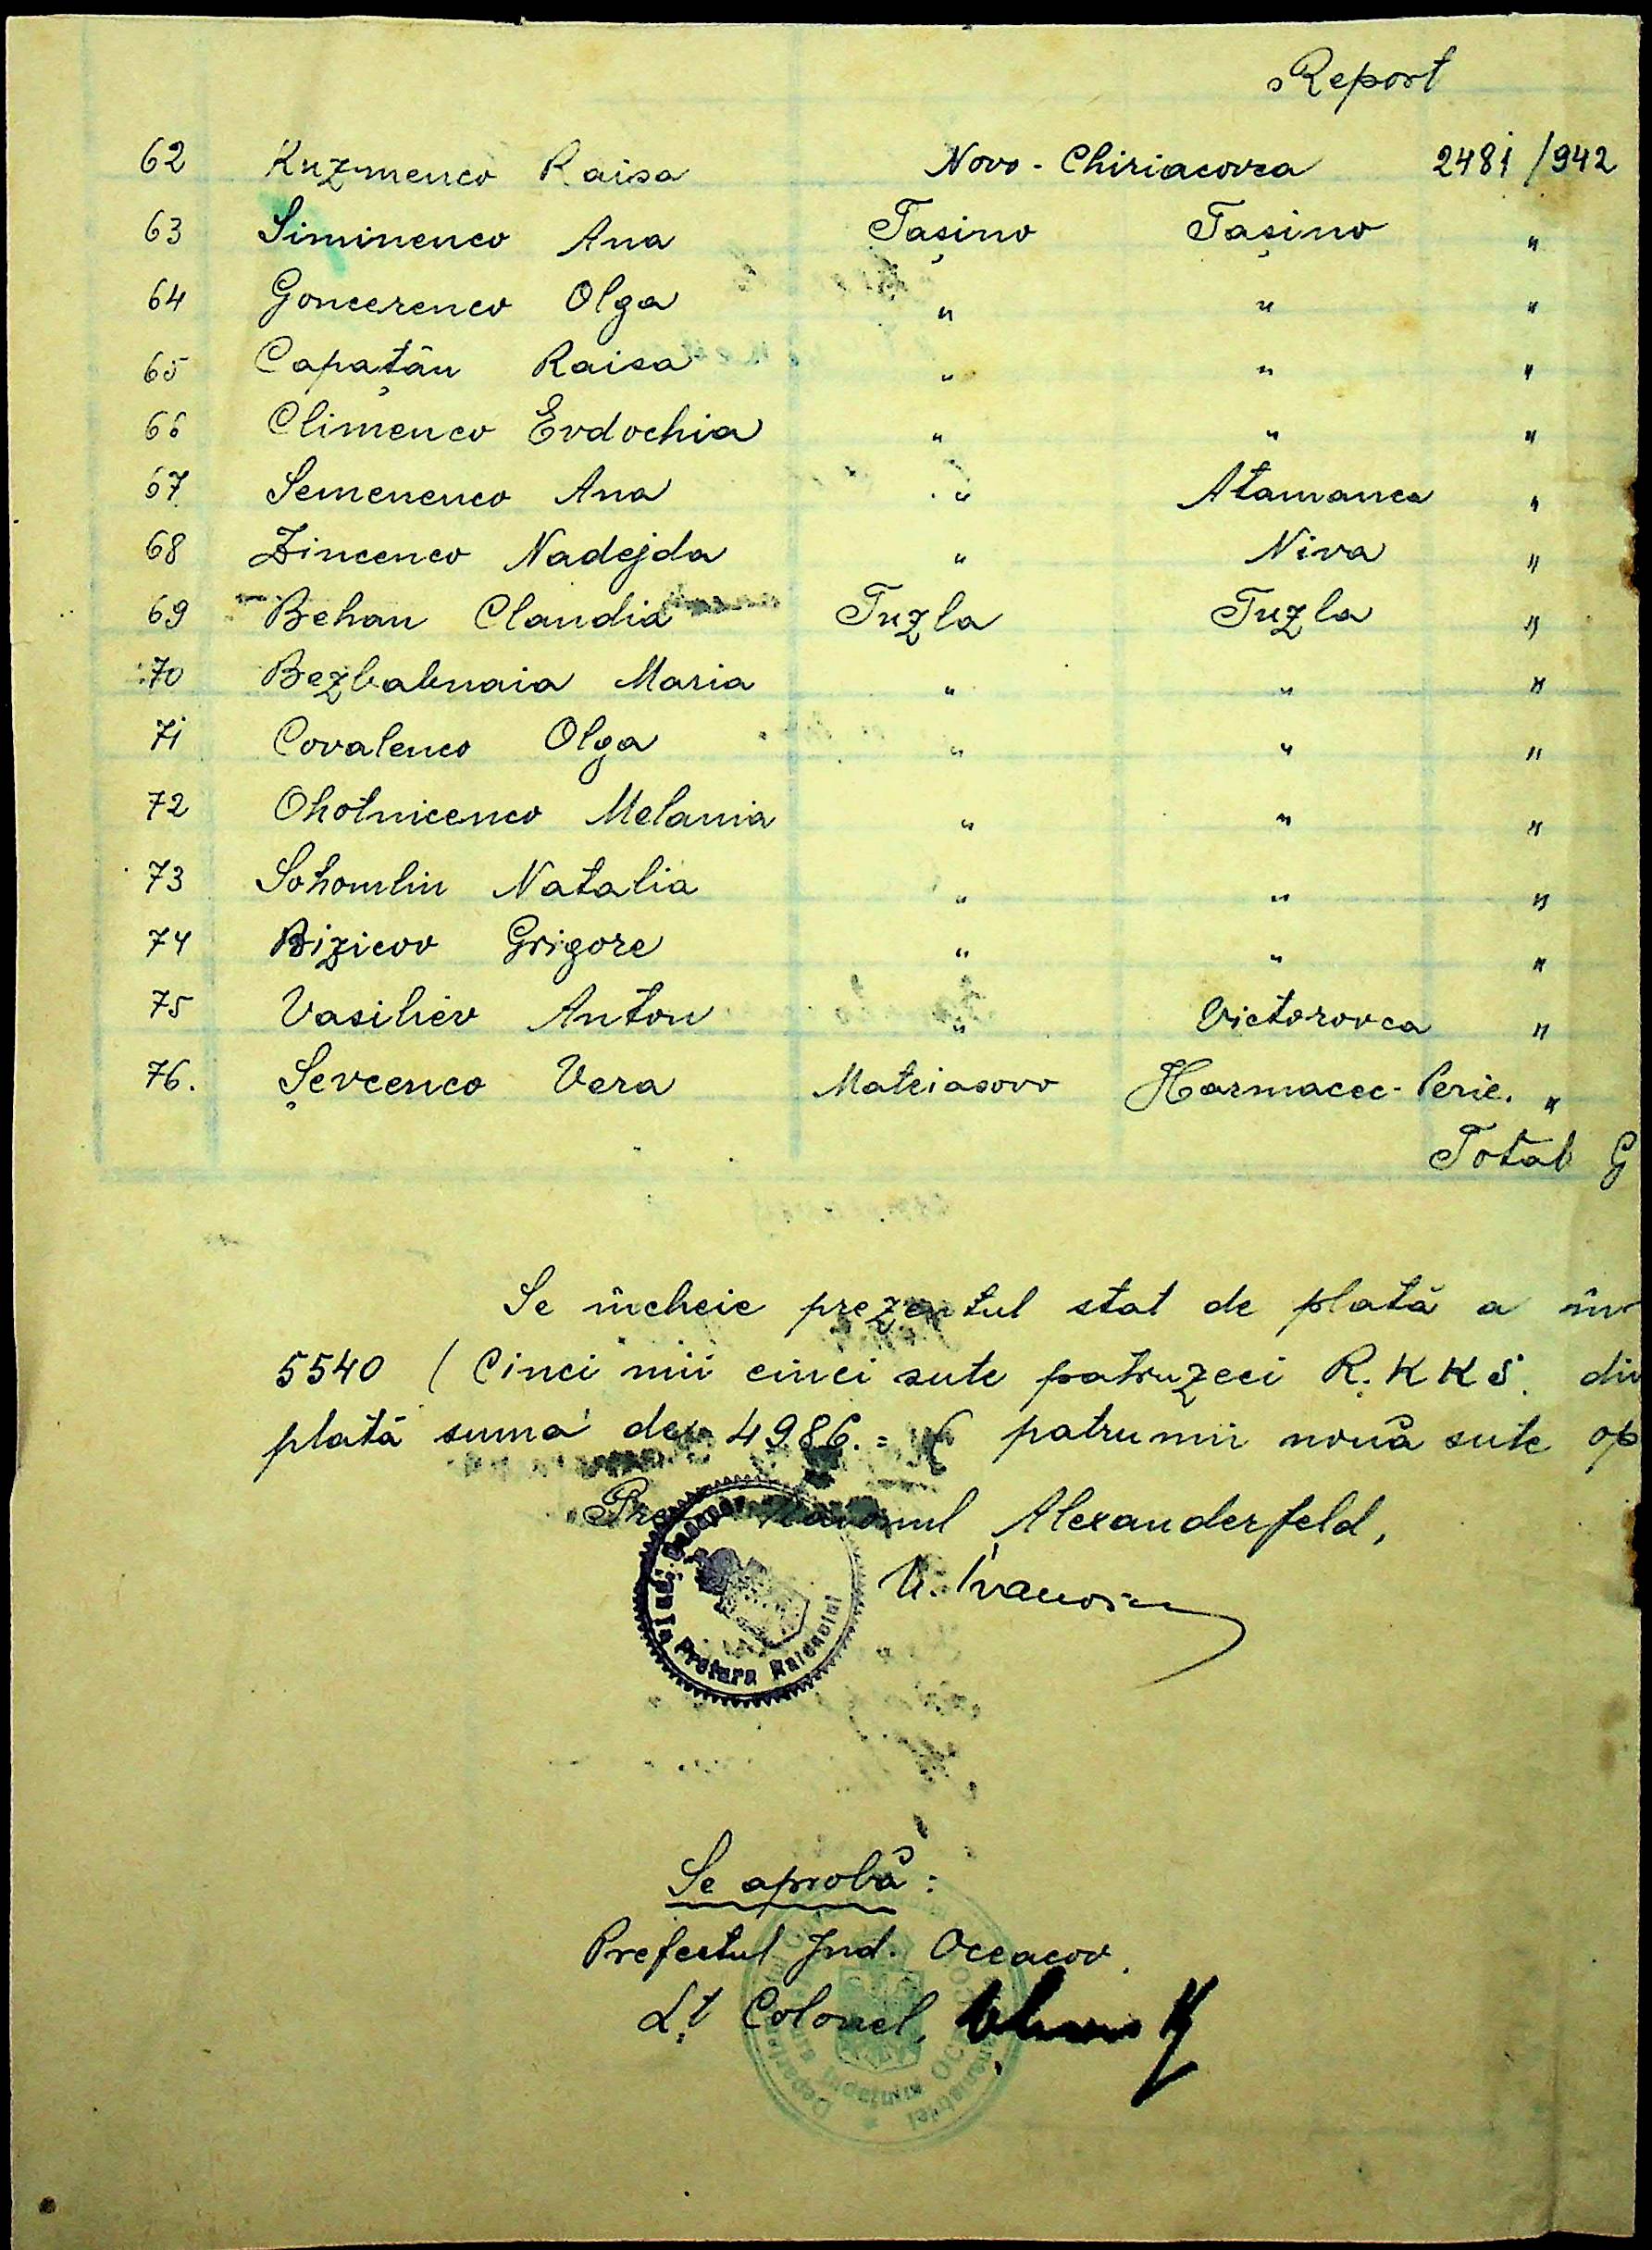 Report
62 Kuzmenco Raisa Novo-Chiriacovca 2481/942
63 Siminenco Ana Tașino Tașino "
64 Goncerenco Olga " " "
65 Capațân Raisa " " "
66 Climenco Evdochia " " "
67 Semenenco Ana " Atamanca "
68 Zincenco Nadejda " Niva "
69 Behan Claudia Tuzla Tuzla "
70 Bezbabnaia Maria " " "
71 Covalenco Olga " " "
72 Ohotnicenco Melania " " "
73 Sohomlin Natalia " " "
74 Bizicov Grigore " " "
75 Vasiliev Anton " Victorovca "
76. Șevcenco Vera Mateiasovo Harmacec-Perie. "
Total G
Se încheie prezentul stat de plată a în
5540 ( Cinci mii cinci sute patruzeci R.K K S. din
plată suma de 4986.= ( patrumii nouă sute op
Alexanderfeld,
Pretura Raionului
Se aprobă:
Prefectul Jud. Oceacov.
Lt Colonel,